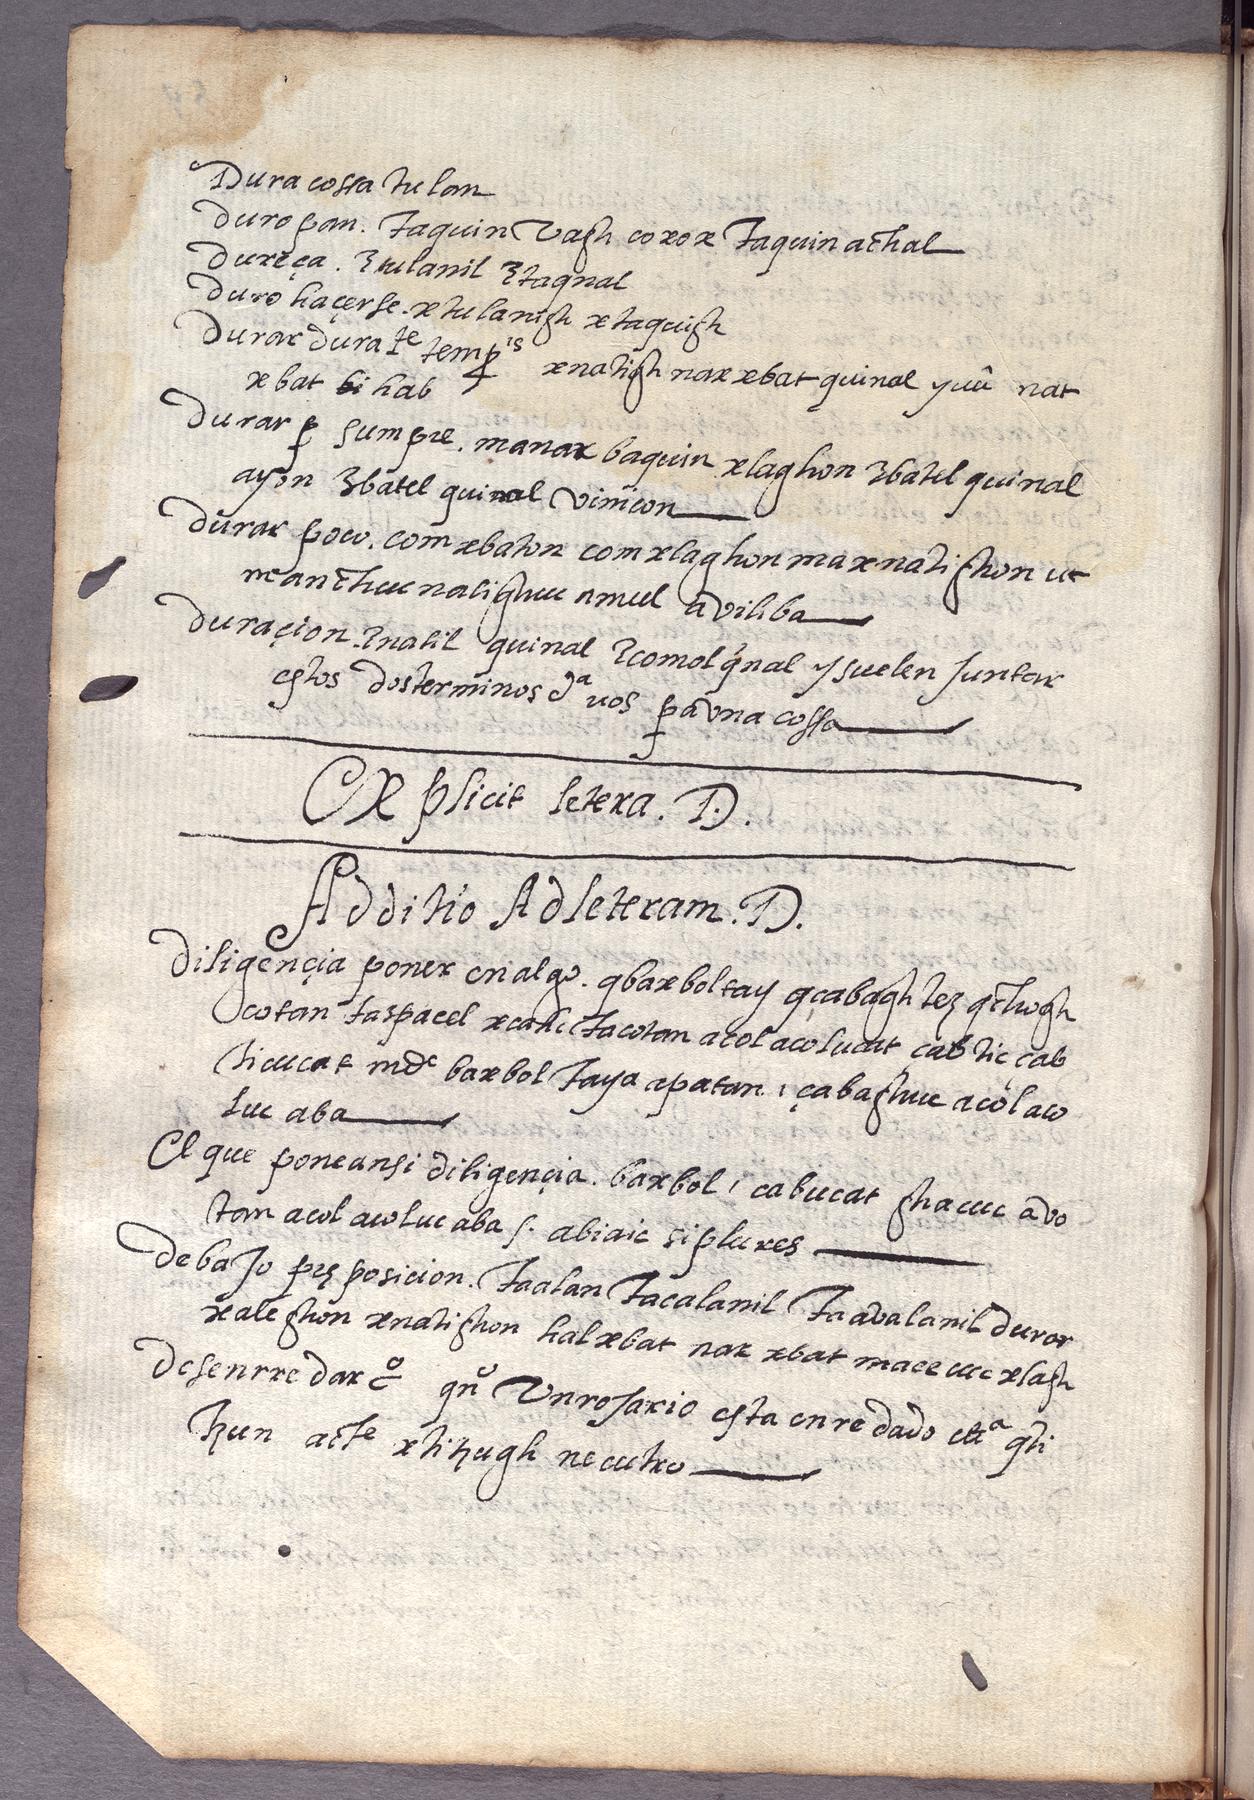 Dura cossa tulan
duro pan. taquin vagh coxox taquin achal
dureça. ꜫtulanil ꜫtaqnal
duro haçerse. xtulanigh xtaquigh
Durar dura te temp is xnatigh nax xbat quinal yuû nat
xbat hab
Durar p sumpre. manax baquin xlaghon ꜫbatel quinal
ayon ꜫbatel quinal vinïcon
Durar poco. com xbaton com xlaghon maxnatighon uc
manchuc natighuc amul aviliba
duraçion. ꜫnatil quinal ꜫcomol qnal y suelen juntar
estos dos terminos d a uos pa vna cossa
Explicit letera. D.
Additio Ad leteram. D.
Diligençia poner en algo. qbaxboltay qçabagh leꜫ qchogh
cotan taspacel tacotan acolacolucat cabtic cab
ticucat md c baxbol taya apatan, çabaghuc acolaco
luc aba
El que pone ansi diligençia. baxbol, cabucat ghacuc avo
tan acolacoluc aba s. abiaic si plures
debajo pꜫposicion. taalan tacalanil taavalanil durar
xaleghon xnatighon halxbat nax xbat maeeuc xlagh
Desenrredar c o qn o vn rosario esta enredado etc a qti
hun ache xtihugh neutro